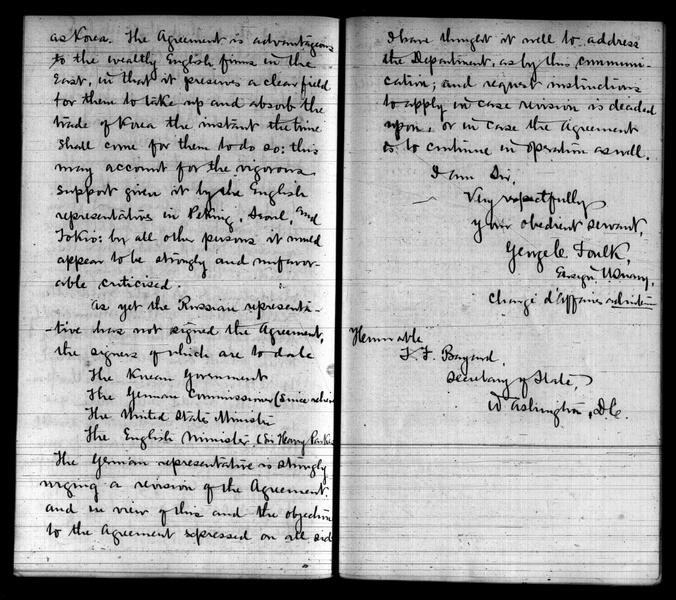 as Korea. The Agreement is advantageous
to the wealthy English firms in the
East, in that it preserves a clear field
for them to take up and absorb the
trade of Korea the instant the time
shall come for them to do so: this
may account for the vigorous
support given it by the English
representatives in Peking, Seoul, and
Tokio: by all other persons it would
appear to be strongly and unfavor-
able criticised.
As yet the Russian representa-
-tive has not signed the Agreement,
the signers of which are to date
The Korean Government
The German Commissioner (since
The United State Minister
The English Minister (Sir Harry
The German representative is strongly
urging a revision of the Agreement.
and in view of this and the objection
to the Agreement expressed on all sid
I have thought it well to address
the Department, as by this communi-
cation; and request instructions
to apply in case revision is decided
upon, or in case the Agreement
is to continue in operation as well.
I am Sir,
Very respectfully
your obedient servant,
George C. Foulk,
Ensign, U.S. Navy,
Chargé d'Affaires ad interim
Honorable
T. F. Bayard,
Secretary of State,
Washington, D.C.